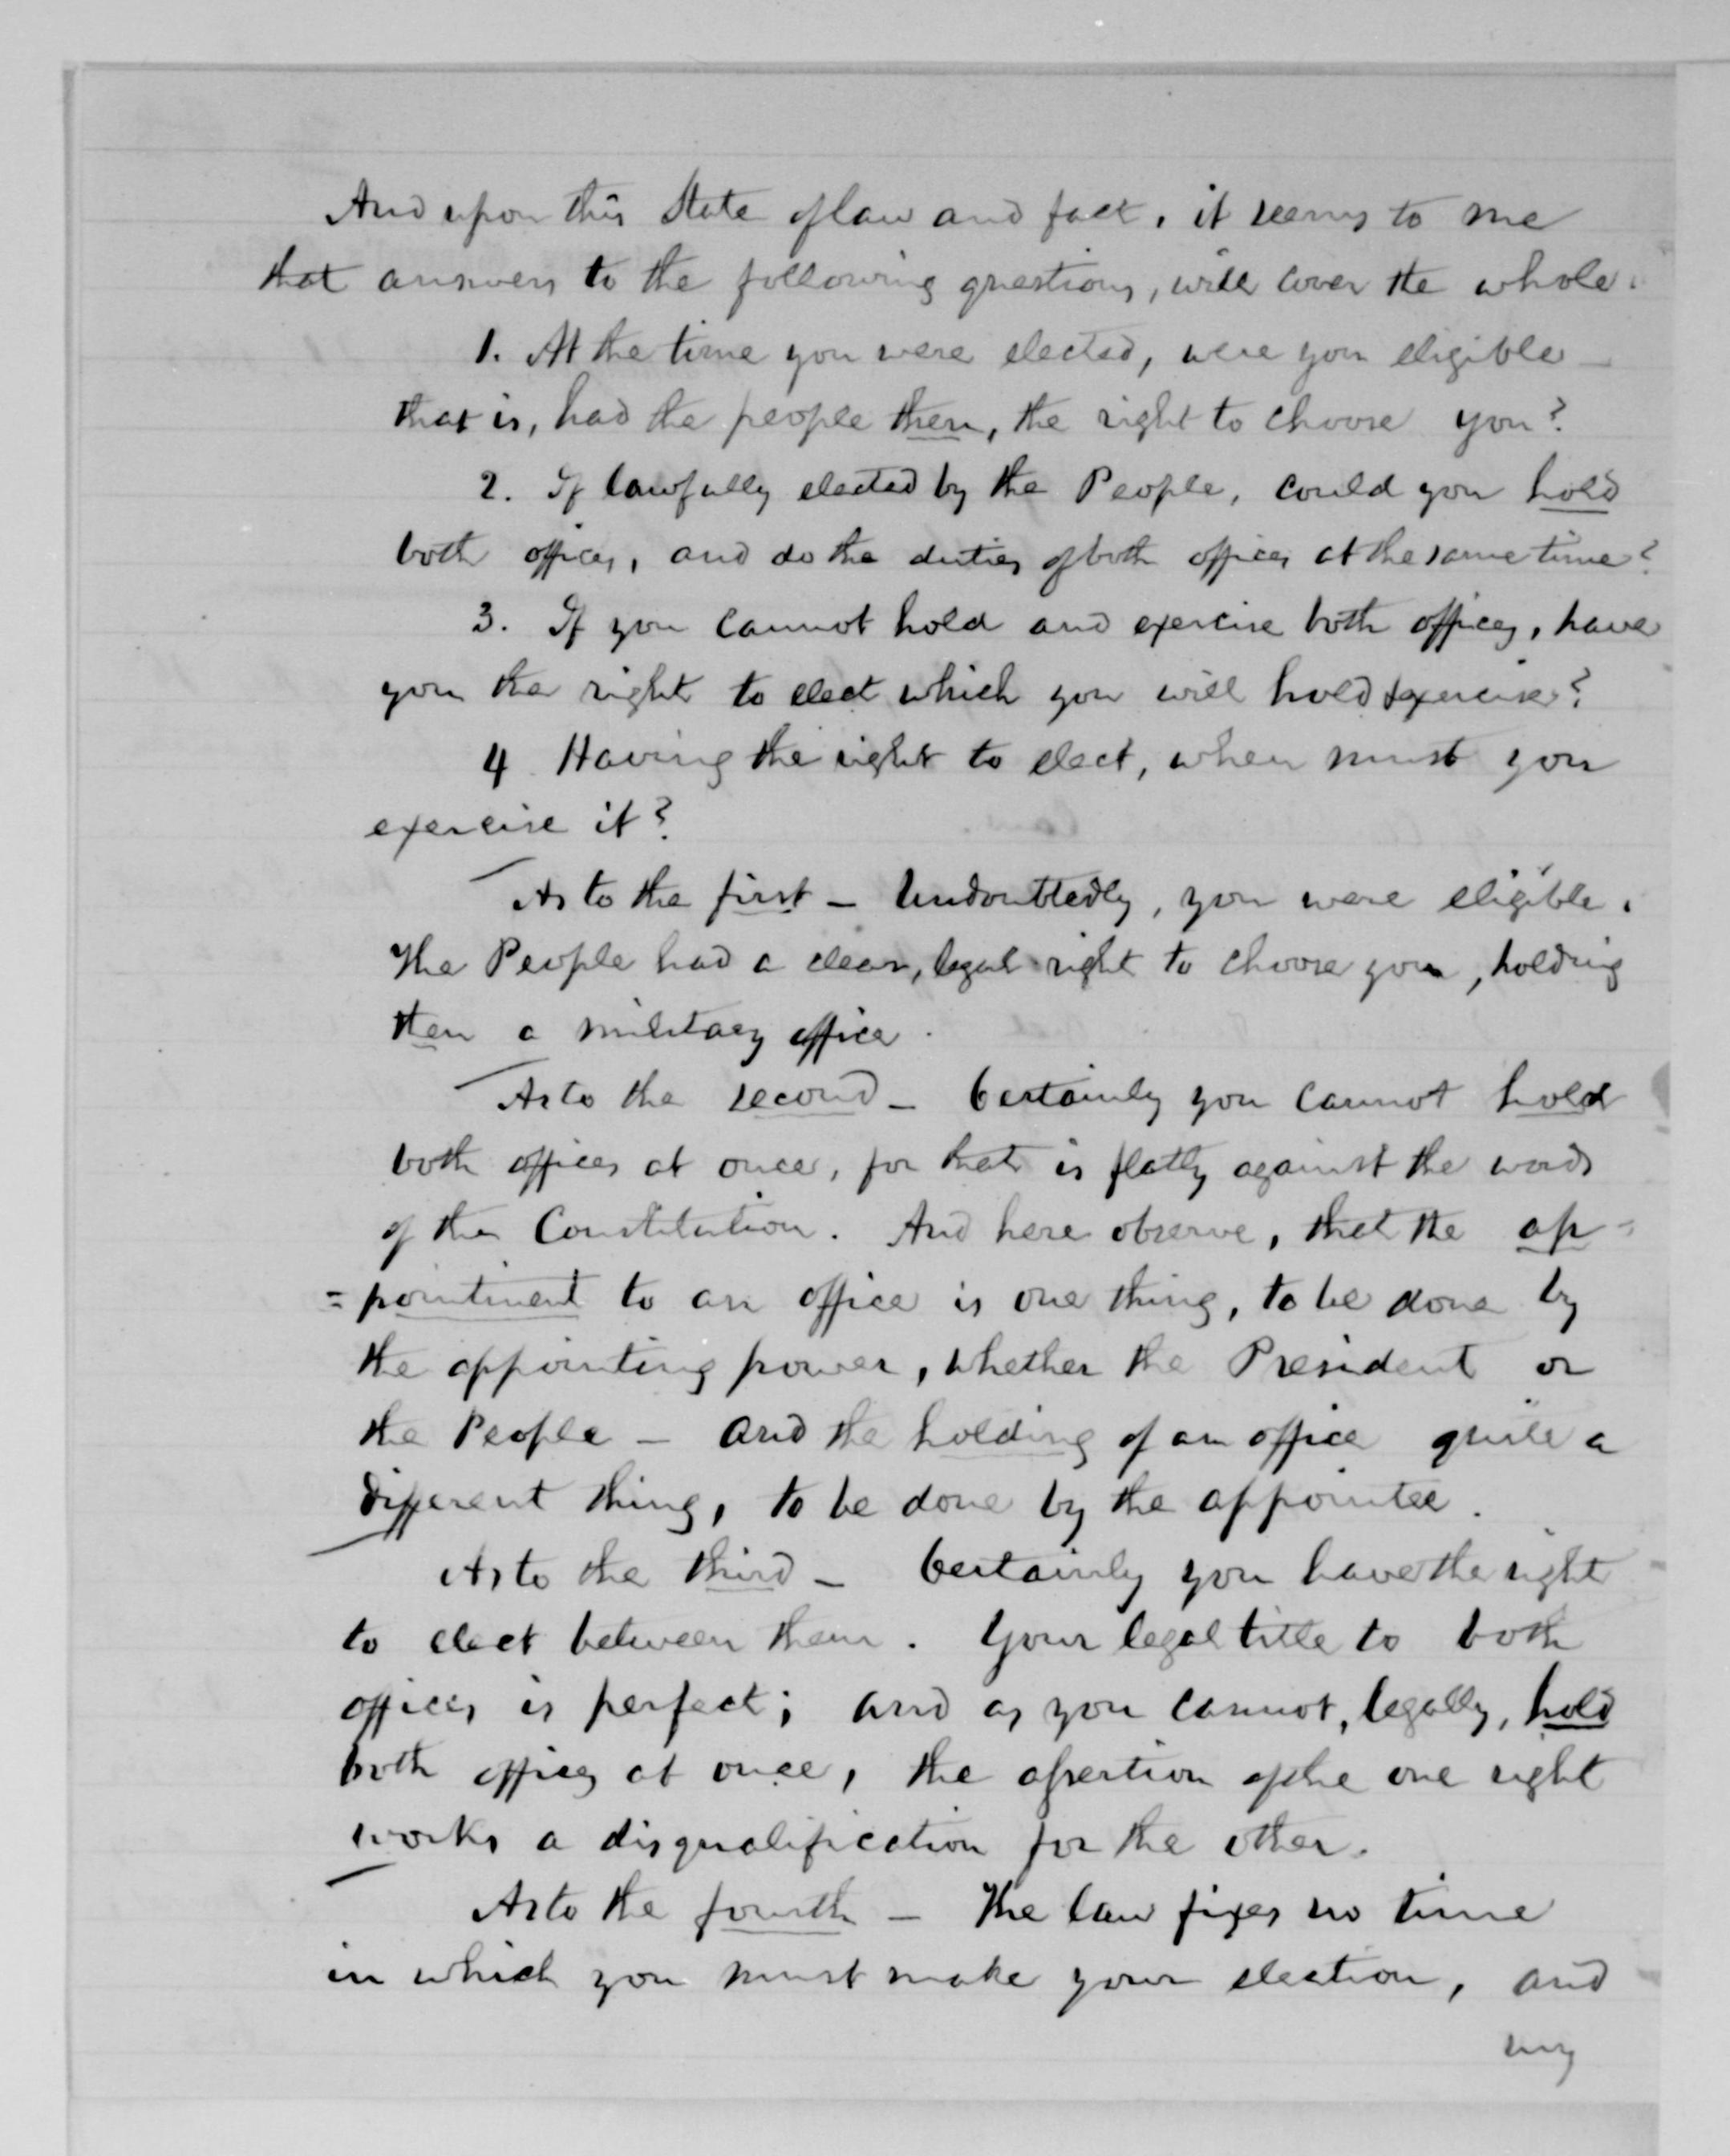 And upon this State of law and fact, it seems to me
that answers to the following questions, will cover the whole.
1. At the time you were elected, were you eligible –
that is, had the people then, the right to choose you?
2. If lawfully elected by the People, could you hold
both offices, and do the duties of both offices at the same time?
3. If you cannot hold and exercise both offices, have
you the right to elect which you will hold & exercise?
4 Having the right to elect, when must you
exercise it?
As to the first – Undoubtedly, you were eligible.
The People had a clear, legal right to choose you, holding
then a military office.
As to the second – Certainly you cannot hold
both offices at once, for that is flatly against the words
of the Constitution. And here observe, that the ap=
=pointment to an office is one thing, to be done by
the appointing power, whether the President or
the People – and the holding of an office quite a
different thing, to be done by the appointee.
As to the third – Certainly you have the right
to elect between them. Your legal title to both
offices is perfect; and as you cannot, legally, hold
both offices at once, the assertion of the one right
works a disqualification for the other.
As to the fourth – The law fixes no time
in which you must make your election, and
my